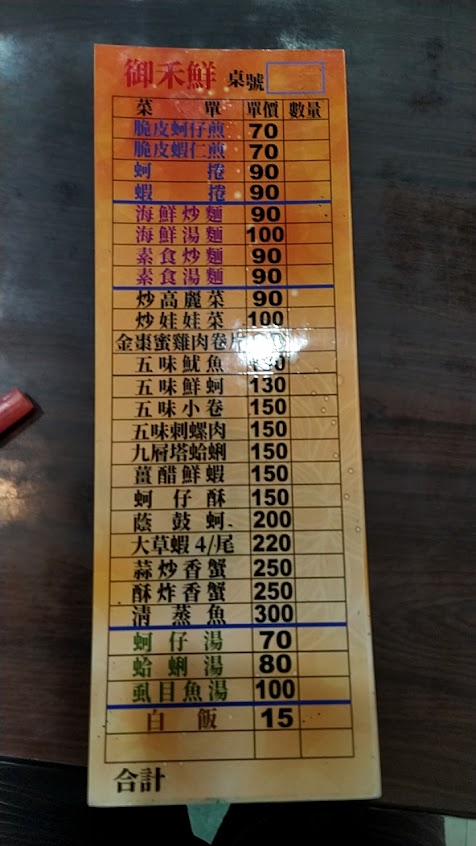 御禾鮮 桌號
菜單 單價 數量
脆皮蚵仔煎 70
脆皮蝦仁煎 70
蚵捲 90
蝦捲 90
海鮮炒麵 90
海鮮湯麵 100
素食炒麵 90
素食湯麵 90
炒高麗菜 90
炒娃娃菜 100
金棗蜜雞肉卷片
五味魷魚
五味鮮蚵 130
五味小卷 150
五味刺螺肉 150
九層塔蛤蜊 150
薑醋鮮蝦 150
蚵仔酥 150
蔭鼓蚵 200
大草蝦4/尾 220
蒜炒香蟹 250
酥炸香蟹 250
清蒸魚 300
蚵仔湯 70
蛤蜊湯 80
虱目魚湯 100
白飯 15
合計